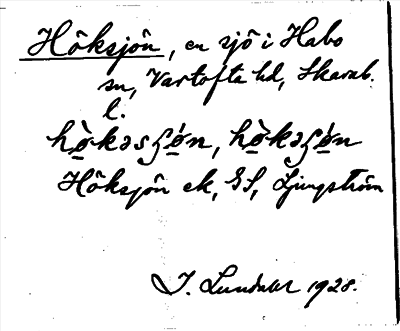 Höksjön, en sjö i Habo
sn, Vartofta hd, Skarab.
l.
hø̀kəsʃǿn, hø̀kəʃǿn
Höksjön ek, GS, Ljungström
I. Lundahl 1928.